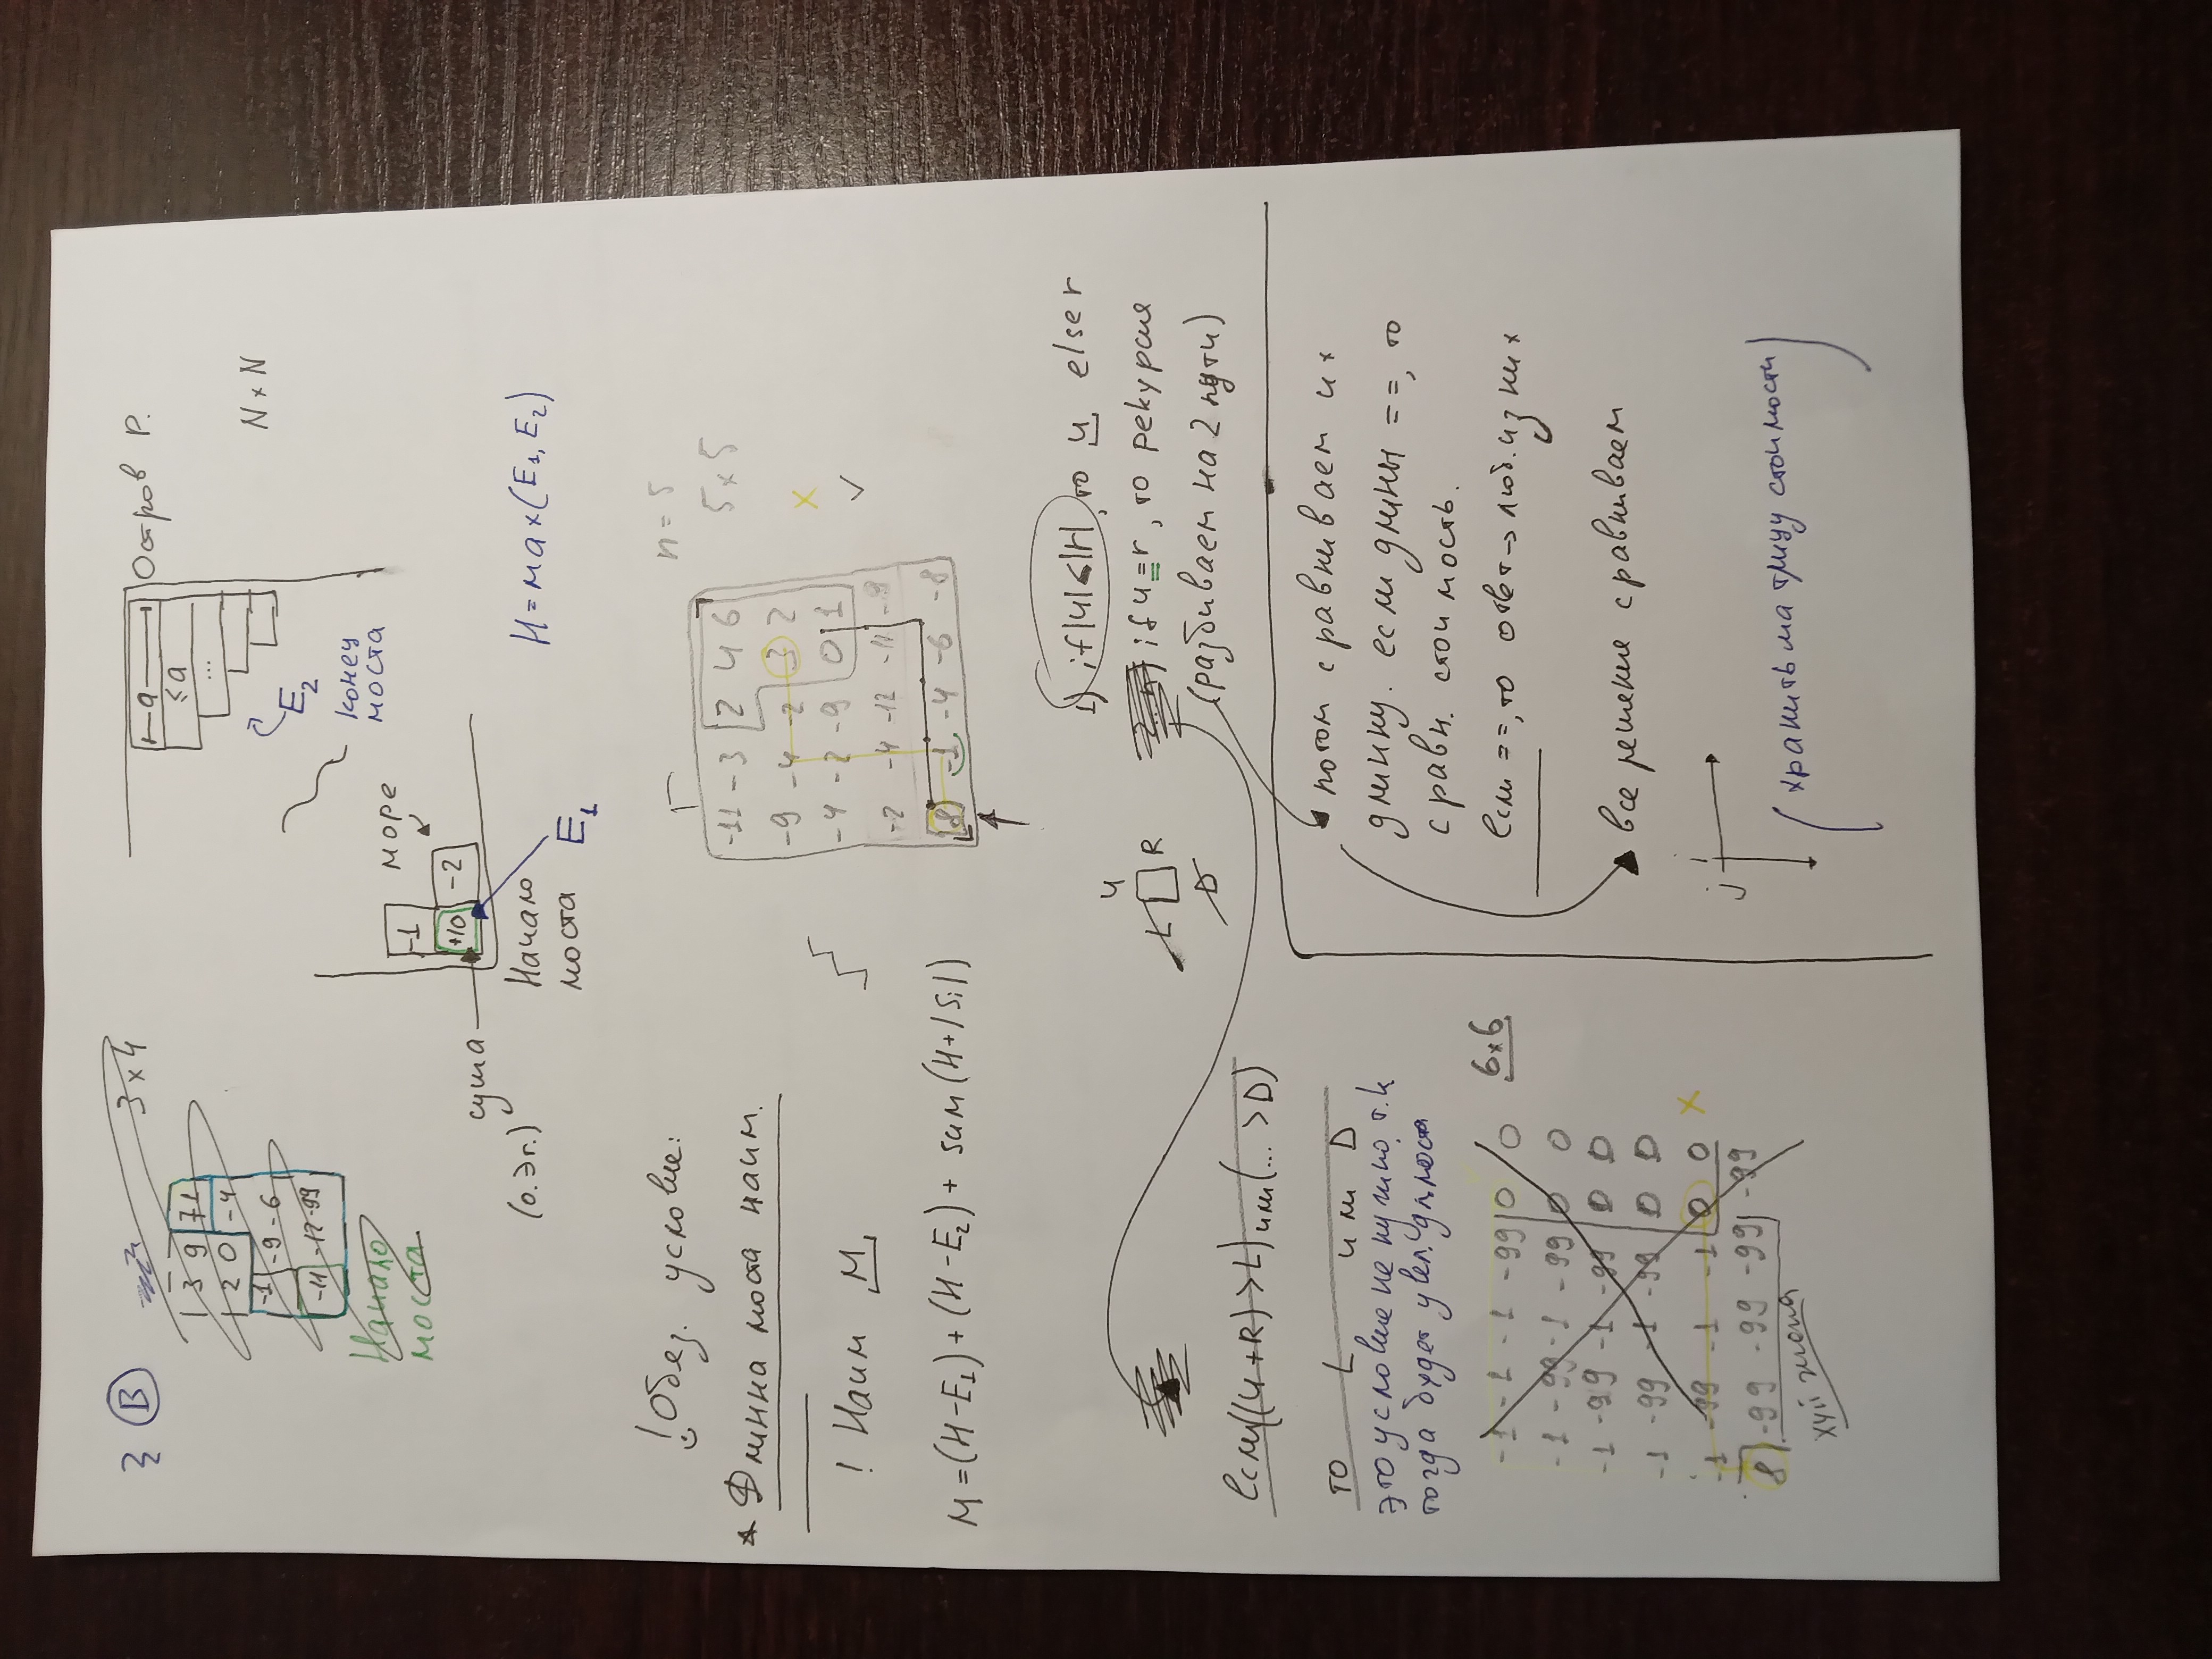 В
3 x 4
1 3 9 71
1 2 0 -4
-1 -9 -6
-11 -12 -99
Начало
моста
Остров Р.
a
≤a
...
E₂
конец
моста
N x N
-1
+10 -2
море
суша
(о.Эг.)
Начало
моста
E₁
H=max(E₁, E₂)
! Обяз. условие:
Длинна моста наим.
! Наим M
M=(H-E₁)+(H-E₂)+ sum(H+|Si|)
n = 5
5x5
-11 -3 2 4 6
-9 -4 -2 3 2
-4 -2 -9 0 1
-2 -4 -12 -11 -9
8 -1 -4 -6 -8
1) if|u|≤|r|, то u else r
if u=r, то рекурсия
(разбиваем на 2 пути)
u
L R
D
если((u+R)>L)или(...>D)
то L или D
это условие не нужно, т.к
тогда будет увел. дл.моста
6x6
-1 -1 -1 -99 0 0
-1 -99 -1 -99 0 0
-1 -99 -1 -99 0 0
-1 -99 -1 -99 0 0
-1 -99 -1 -1 0 0
8 -99 -99 -99 -99
потом сравниваем их
длинну. если длины ==, то
сравн. стоимость.
если ==, то ответ→люб.из них
все решение сравниваем
i
j
(хранить матрицу стоимости)